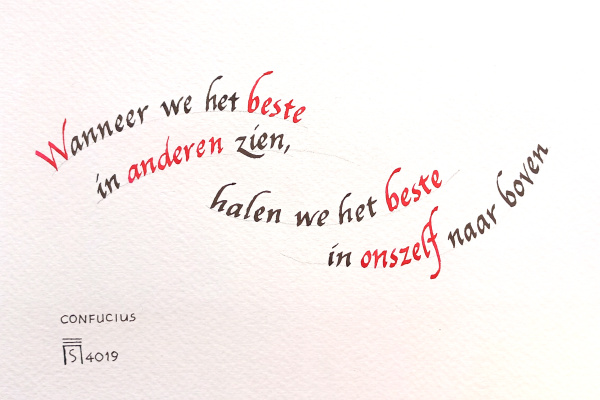 Wanneer we het beste
in anderen zien,
halen we het beste
in onszelf naar boven
CONFUCIUS
S 4019